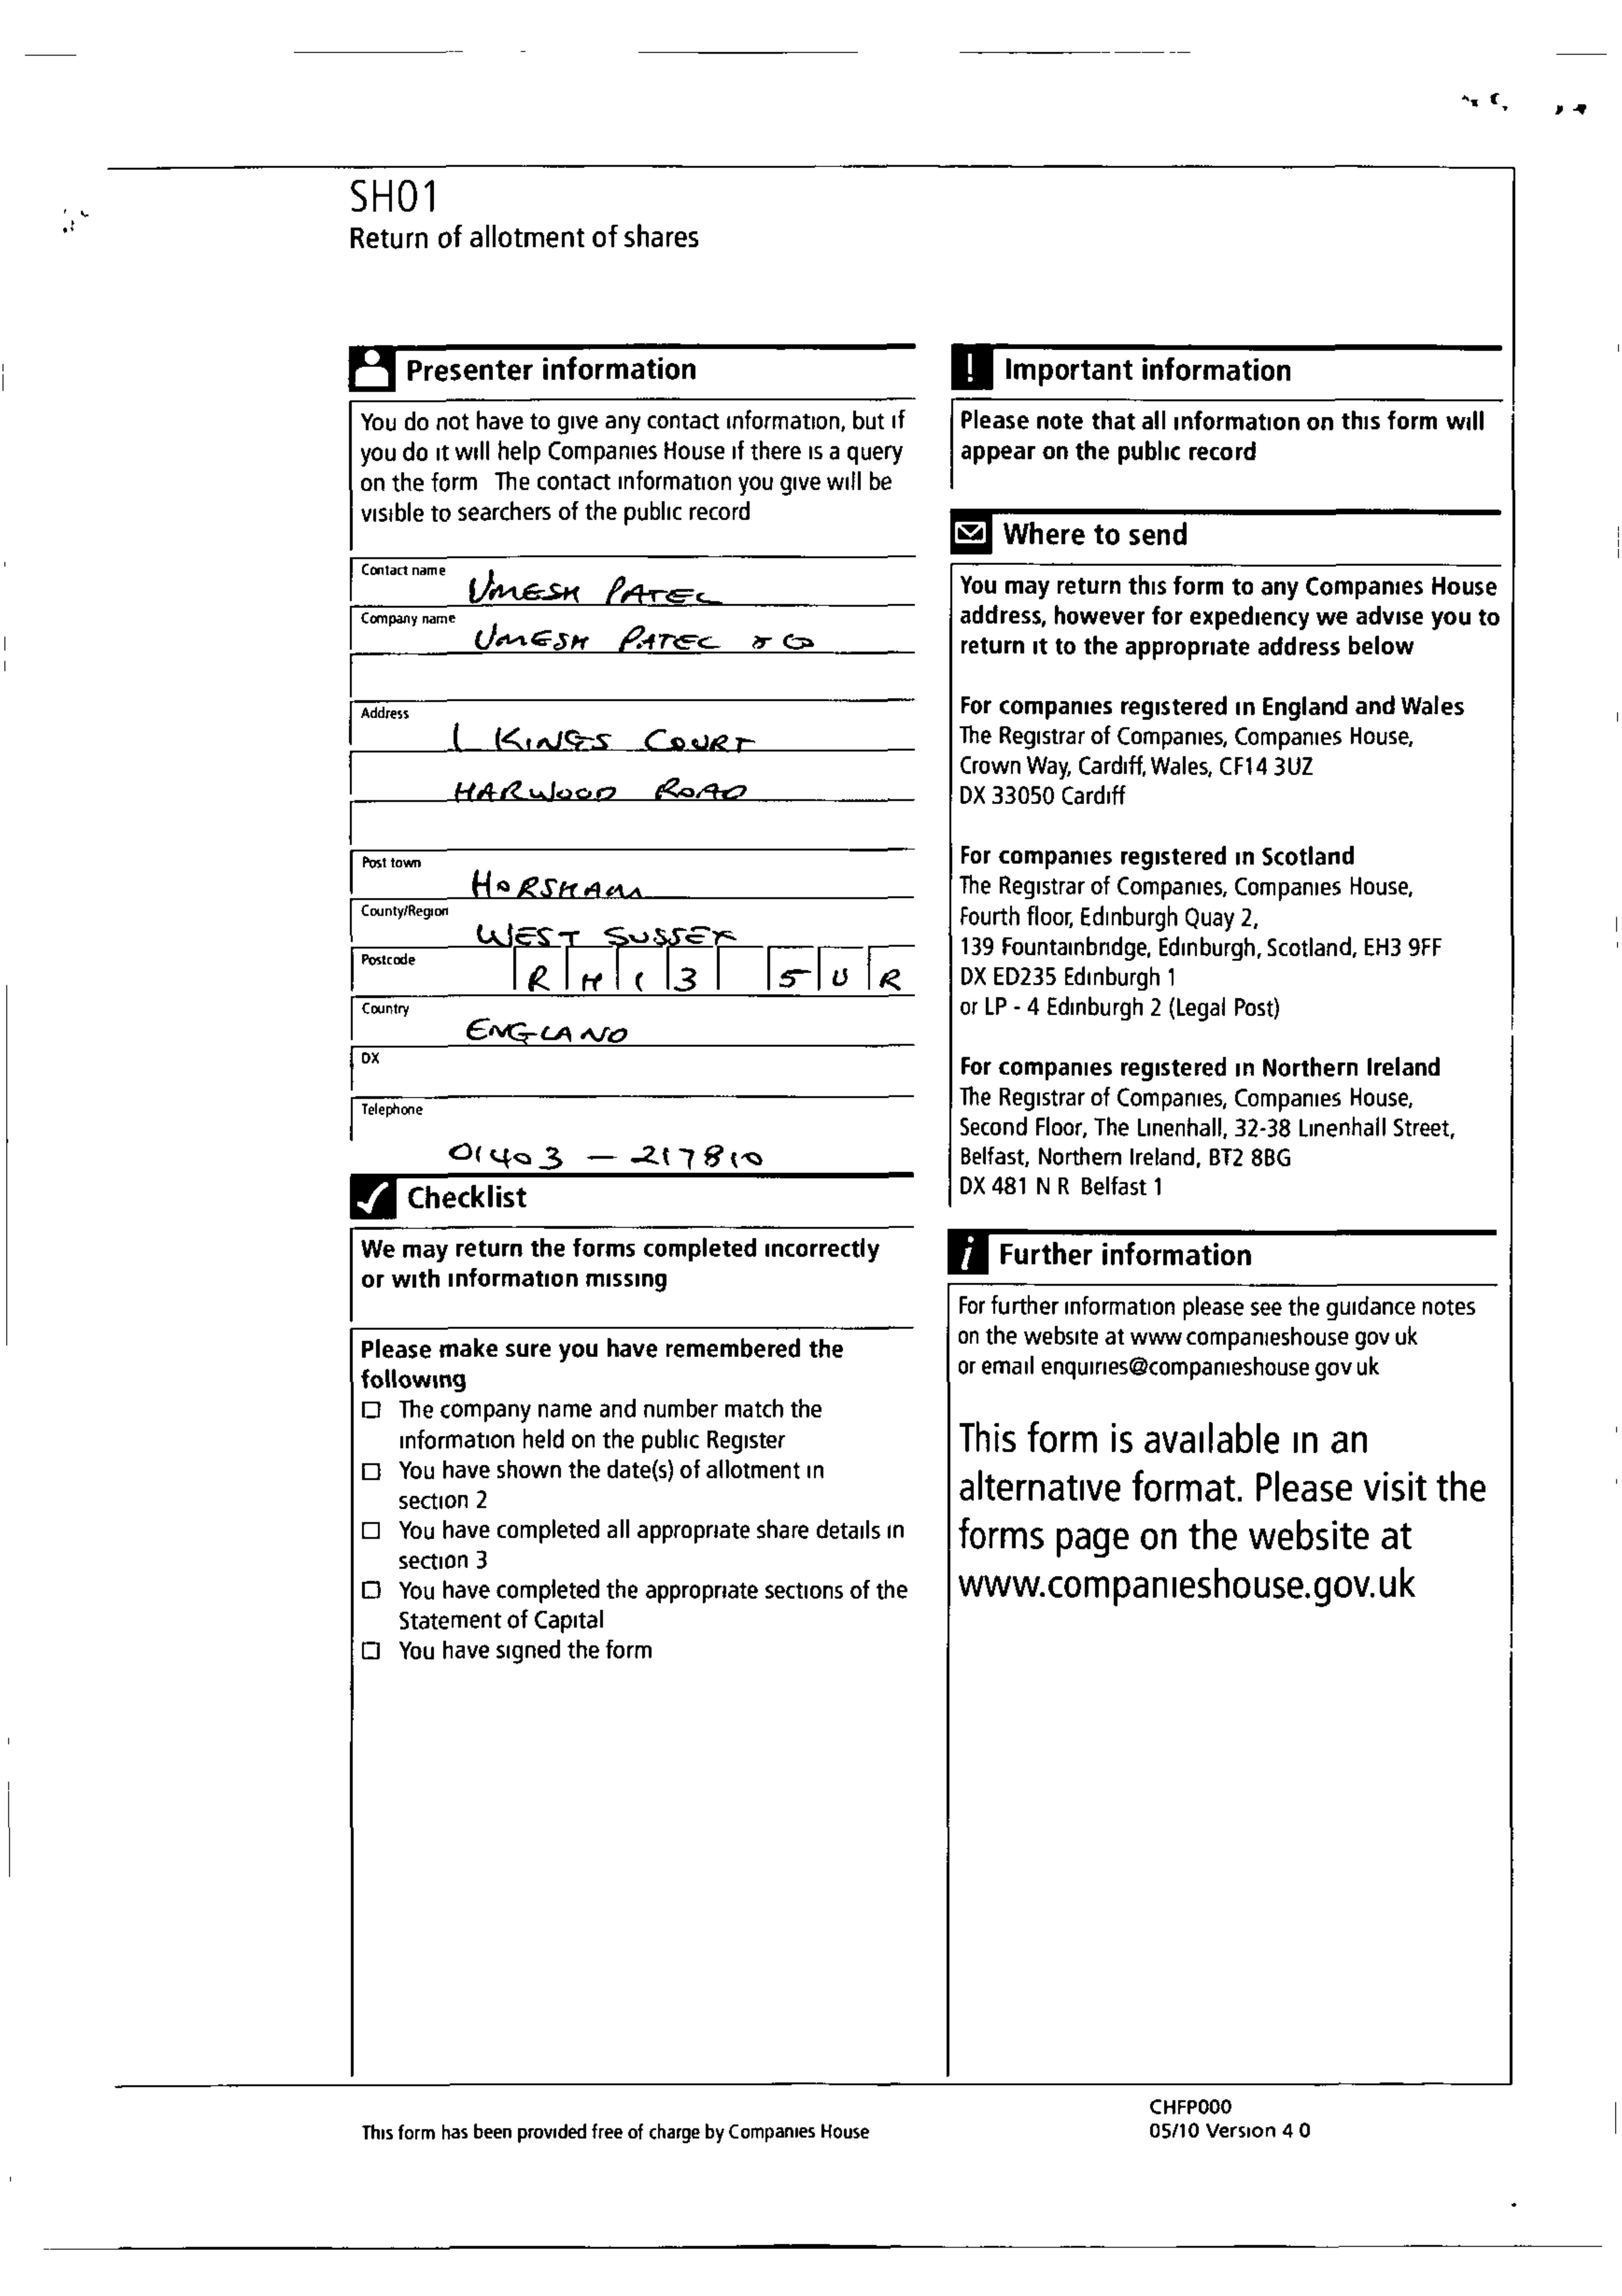 SH01
Return of allotment of shares
Presenter information
You do not have to give any contact information, but if
you do it will help Companies House if there is a query
on the form The contact information you give will be
visible to searchers of the public record
Contact name UMESH PATEL
Company name UMESH PATEL & CO
Address 1 KINGS COURT
HARWOOD ROAD
Post town HORSHAM
County/Region WEST SUSSEX
Postcode RH13 5UR
Country ENGLAND
DX
Telephone
01403 - 217810
Checklist
We may return the forms completed incorrectly
or with information missing
Please make sure you have remembered the
following
The company name and number match the
information held on the public Register
You have shown the date(s) of allotment in
section 2
You have completed all appropriate share details in
section 3
You have completed the appropriate sections of the
Statement of Capital
You have signed the form
! Important information
Please note that all information on this form will
appear on the public record
Where to send
You may return this form to any Companies House
address, however for expediency we advise you to
return it to the appropriate address below
For companies registered in England and Wales
The Registrar of Companies, Companies House,
Crown Way, Cardiff, Wales, CF14 3UZ
DX 33050 Cardiff
For companies registered in Scotland
The Registrar of Companies, Companies House,
Fourth floor, Edinburgh Quay 2,
139 Fountainbridge, Edinburgh, Scotland, EH3 9FF
DX ED235 Edinburgh 1
or LP - 4 Edinburgh 2 (Legal Post)
For companies registered in Northern Ireland
The Registrar of Companies, Companies House,
Second Floor, The Linenhall, 32-38 Linenhall Street,
Belfast, Northern Ireland, BT2 8BG
DX 481 N R Belfast 1
i Further information
For further information please see the guidance notes
on the website at www companieshouse gov uk
or email enquiries@companieshouse gov uk
This form is available in an
alternative format. Please visit the
forms page on the website at
www.companieshouse.gov.uk
This form has been provided free of charge by Companies House
CHFP000
05/10 Version 4 0